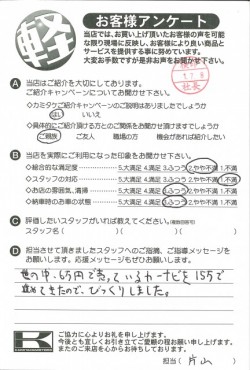 軽
お客様アンケート
当店では、お買い上げ頂いたお客様の声を可能
な限り現場に反映し、お客様により良い商品と
サービスを提供する事に努めています。
大変お手数ですが是非お声をお聞かせ下さい。
A 当店はご紹介を大切にしてあります。
ご紹介キャンペーンについてお聞かせ下さい。
・カミタケご紹介キャンペーンのご説明はありましたでしょうか
はい いいえ
・具体的にご紹介頂ける方とのご関係をお聞かせ頂けますでしょうか
ご親族 ご友人 職場の方 機会があれば紹介したい
B 当店を実際にご利用になった印象をお聞かせ下さい。
◇総合的な満足度 5.大満足 4.満足 3.ふつう 2.やや不満 1.不満
・スタッフの対応 5.大満足 4.満足 3.ふつう 2.やや不満 1.不満
・お店の雰囲気、清掃 5.大満足 4.満足 3.ふつう 2.やや不満 1.不満
・納車時のお車の状態 5.大満足 4.満足 3.ふつう 2.やや不満 1.不満
C 評価したいスタッフがいれば教えてください。(複数回答可)
スタッフ名( )( )
D 担当させて頂きましたスタッフへのご感想、ご指導メッセージを
お願いします。応援メッセージもぜひお願いします。
世の中、6万円で売っているカーナビを15万で
進めてきたので、びっくりしました。
K
ご協力に心よりお礼を申し上げます。
今後とも宜しくお引き立てご愛顧の程お願い申し上げます。
またのご来店を心からお待ちしております。
担当( 片山 )